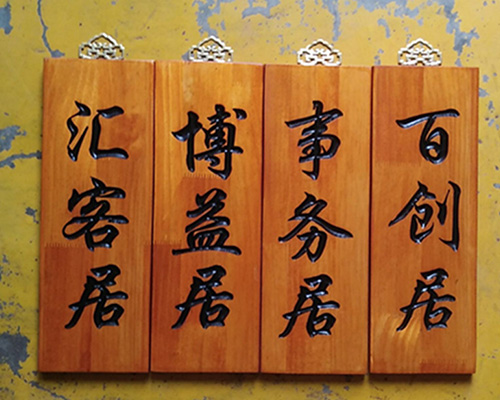 汇客居
博益居
事务居
百创居